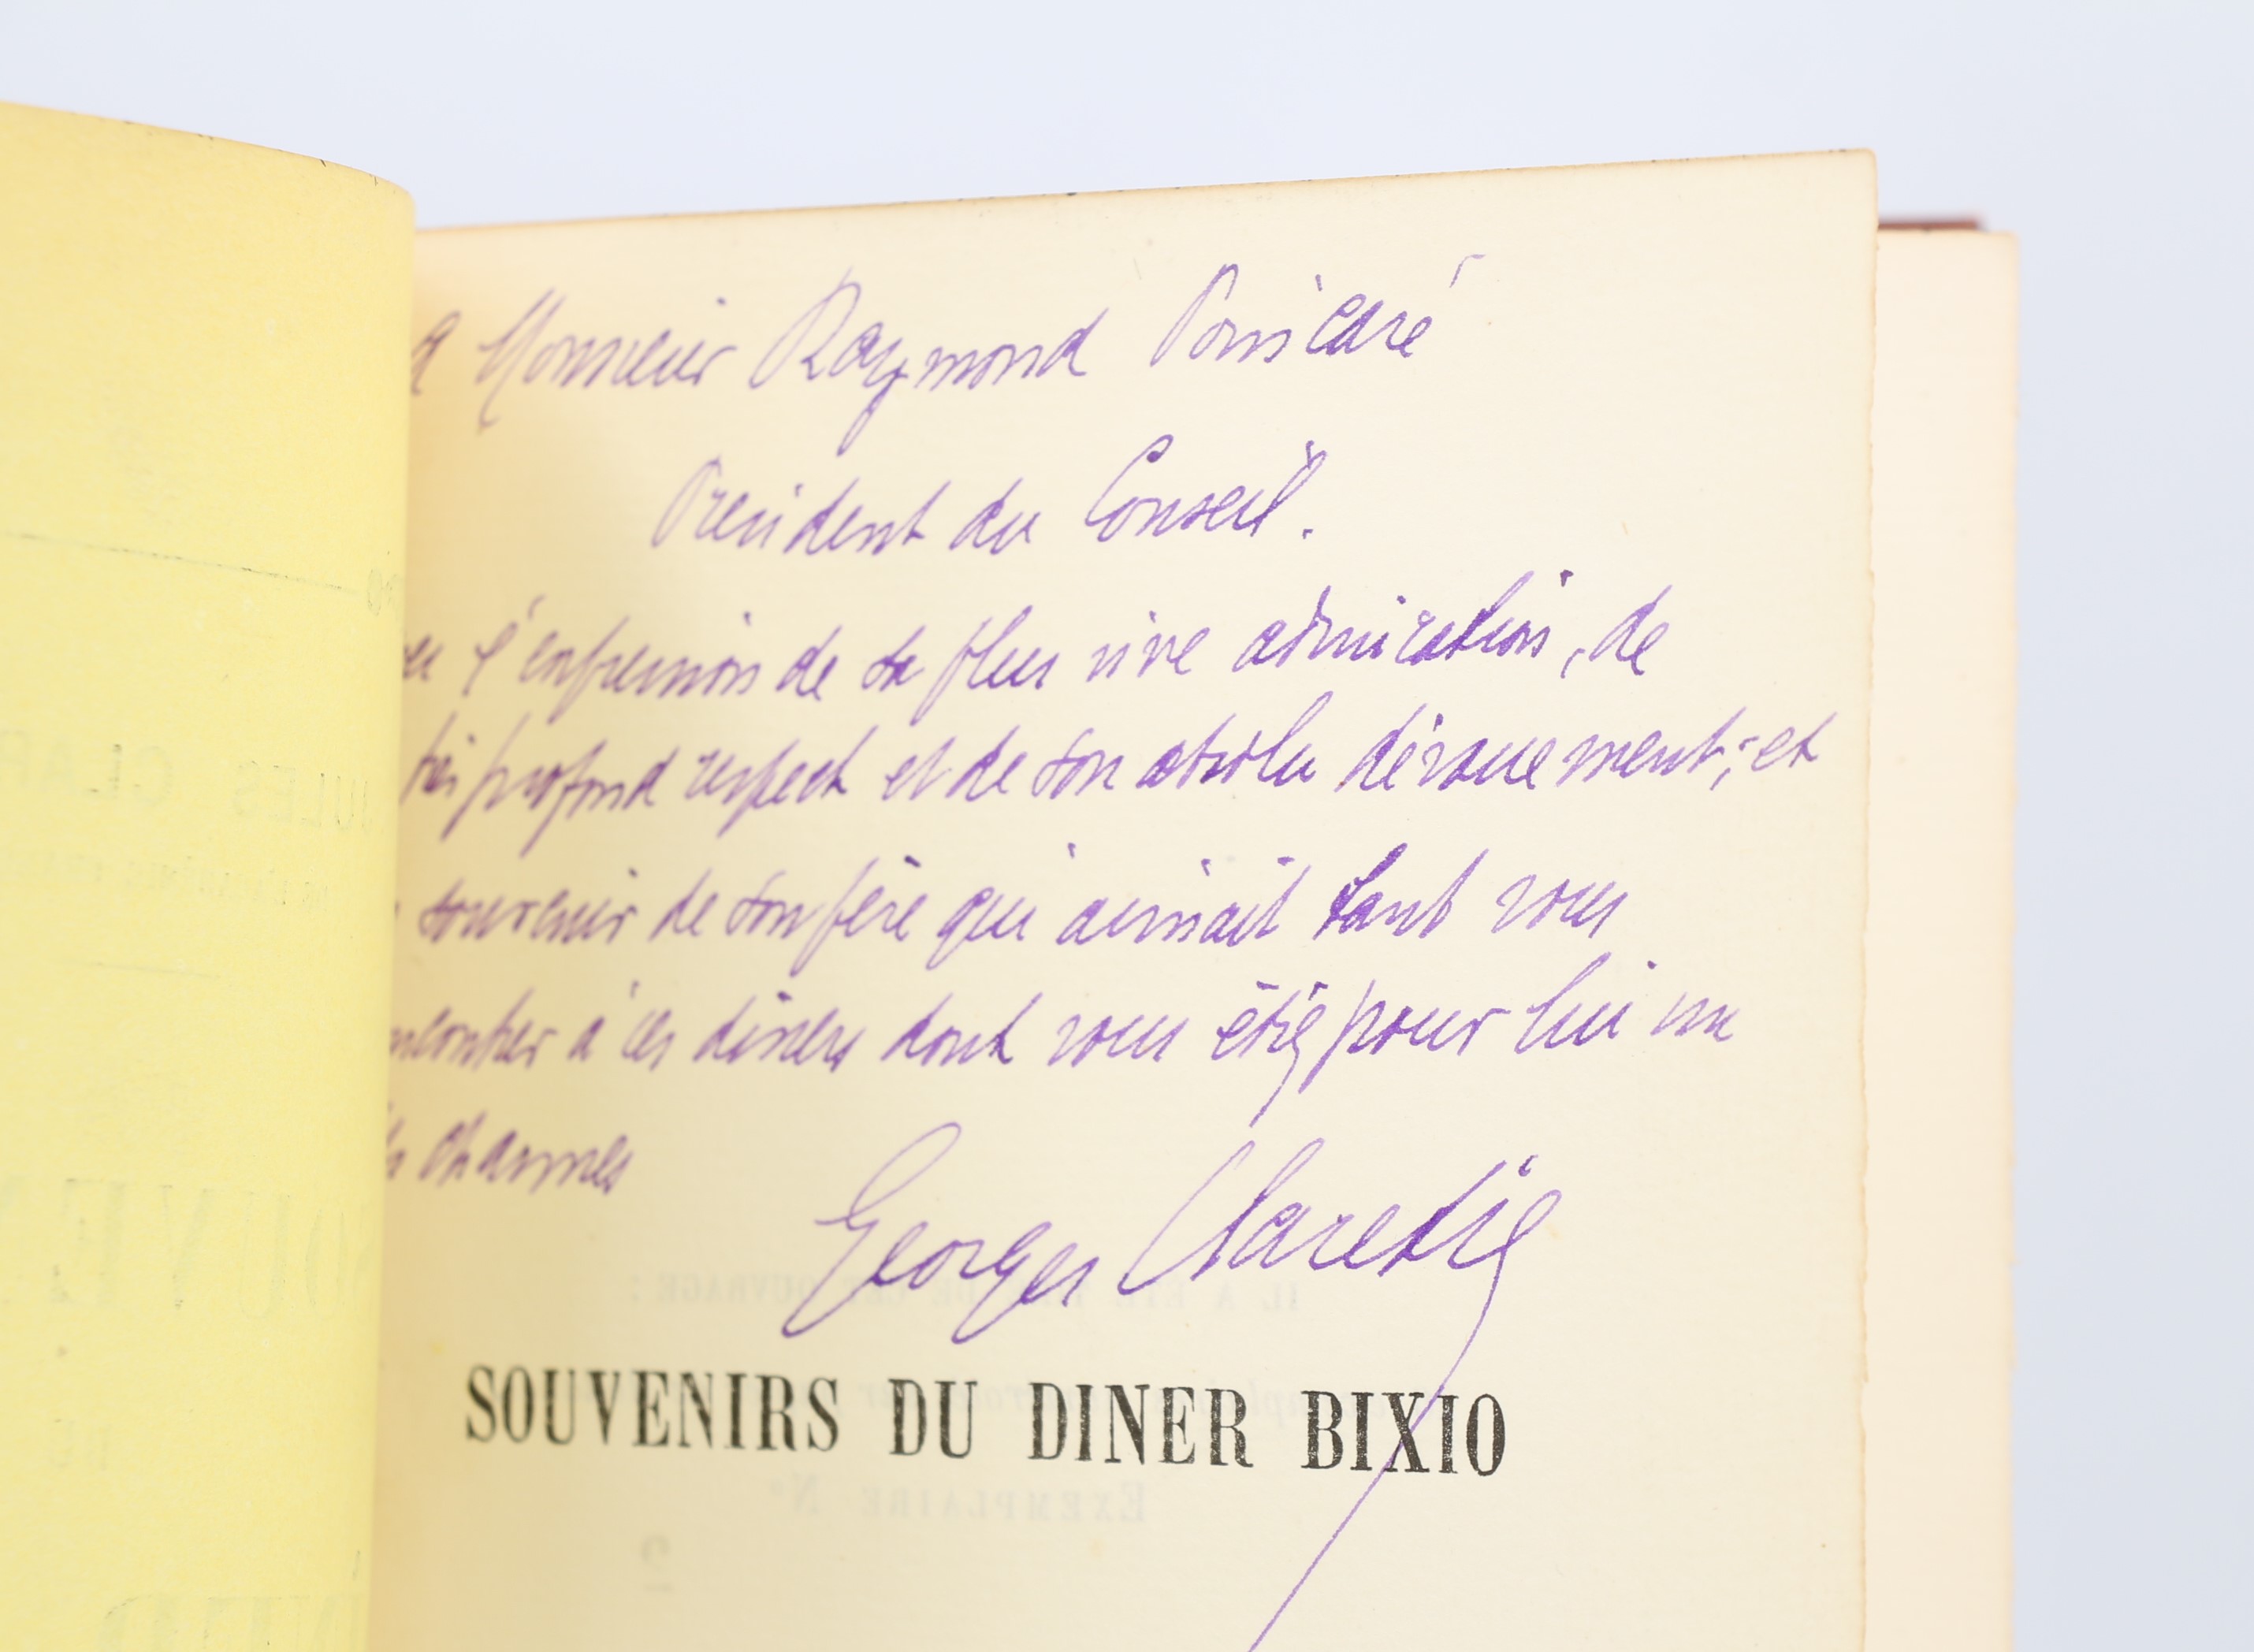 a Monsieur Raymond Poincaré
Président du Conseil.
l'expression de sa plus vive admiration, de
très profond respect et de son absolu dévouement, et
souvenir de son père qui aimait tant vous
rencontrer à ces diners dont vous étiez pour lui un
charmes
Georges Claretie
IL A ÉTÉ TIRÉ DE CET OUVRAGE :
SOUVENIRS DU DINER BIXIO
EXEMPLAIRE N°
2